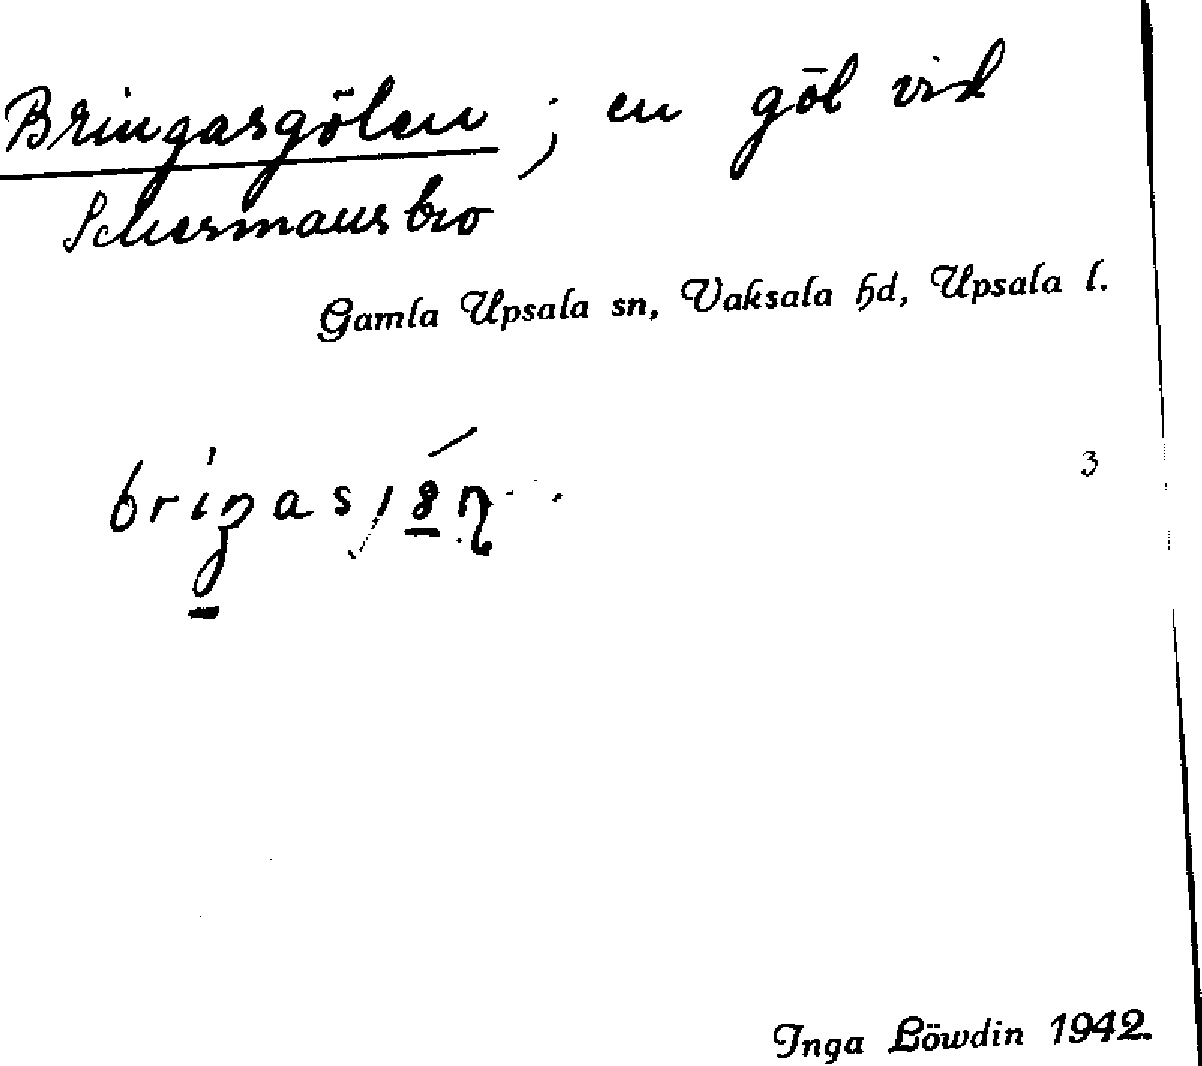 Bringasgölen ; en göl vid
Schermans bro
Gamla Upsala sn, Vaksala hd, Upsala l.
3
Inga Löwdin 1942.